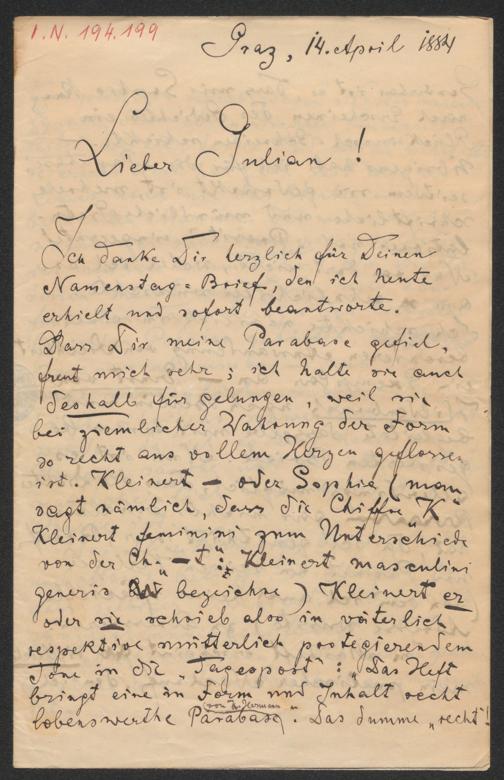 I.N. 194.199
Graz, 14. April 1884
Lieber Julian!
Ich danke Dir herzlich für Deinen
Namenstag=Brief, den ich heute
erhielt und sofort beantworte.
Dass Dir meine Parabase gefiel,
freut mich sehr; ich halte sie auch
deshalb für gelungen, weil sie
bei ziemlicher Wahrung der Form
so recht aus vollem Herzen geflossen
ist. Kleinert – oder Sophie (man
sagt nämlich, dass die Chiffre "K"
Kleinert feminini zum Unterschiede
von der Ch. "–t": Kleinert masculini
generis bezeichne) Kleinert er
oder sie schrieb also in väterlich
respektive mütterlich protegierendem
Tone in die „Tagespost": „Das Heft
bringt eine in Form und Inhalt recht
lobenswerthe Parabase (von H. Herman)". Das dumme „recht"!